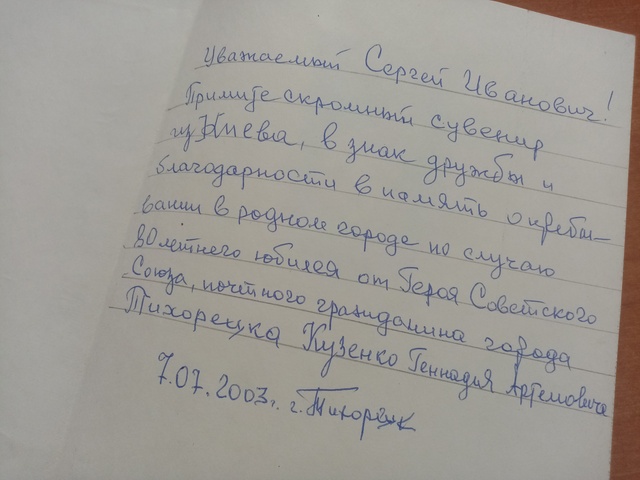 Уважаемый Сергей Иванович!
Примите скромный сувенир
из Киева, в знак дружбы и
благодарности в память о пребы-
вании в родном городе по случаю
80летнего юбилея от Героя Советского
Союза, почётного гражданина города
Тихорецка Кузенко Геннадия Артемовича
7.07.2003г. г. Тихорецк